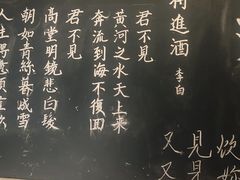 将進酒 李白
君不見
黃河之水天上来
奔流到海不復回
君不見
高堂明鏡悲白髮
朝如青絲暮成雪
人生得意須盡歡
又見炊
又見